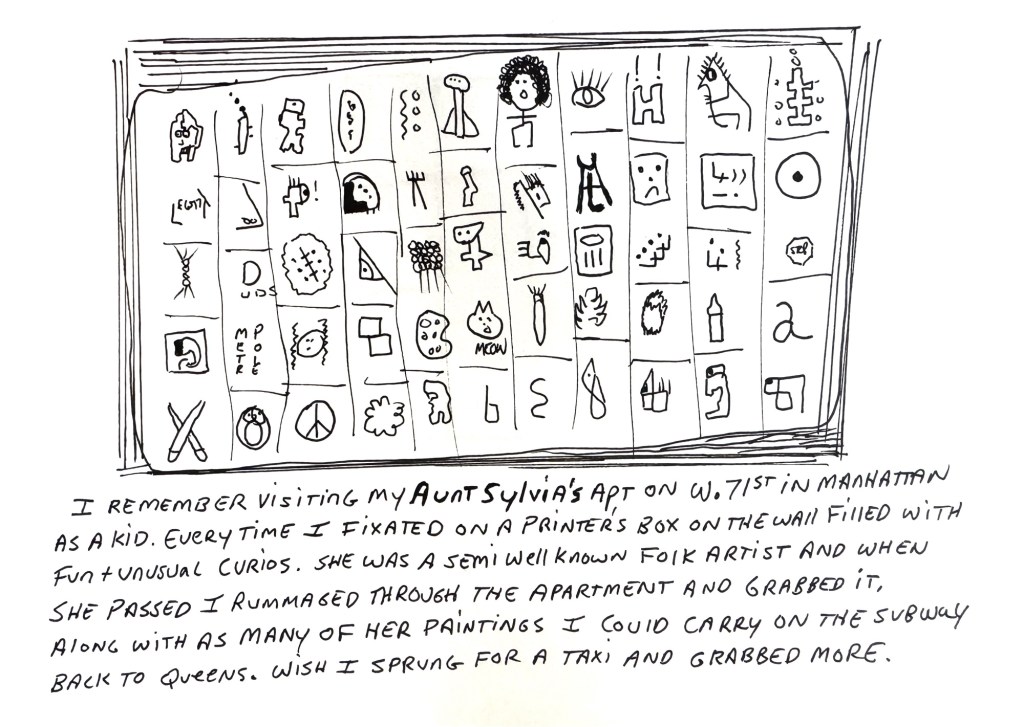 !
DUDS
METRE POLE
MEOW
I REMEMBER VISITING MY AUNT SYLVIA'S APT ON W. 71ST IN MANHATTAN
AS A KID. EVERY TIME I FIXATED ON A PRINTER'S BOX ON THE WALL FILLED WITH
FUN + UNUSUAL CURIOS. SHE WAS A SEMI WELL KNOWN FOLK ARTIST AND WHEN
SHE PASSED I RUMMAGED THROUGH THE APARTMENT AND GRABBED IT,
ALONG WITH AS MANY OF HER PAINTINGS I COULD CARRY ON THE SUBWAY
BACK TO QUEENS. WISH I SPRUNG FOR A TAXI AND GRABBED MORE.